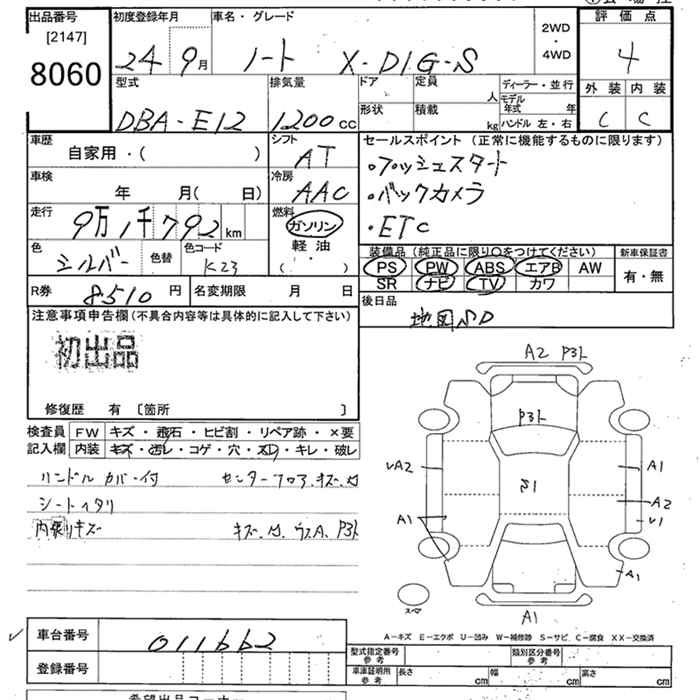 出品番号 初度登録年月 車名・グレード 評価点
[2147] 2WD
8060 24 9月 ノート X-DIG-S ・ 4
4WD
型式 排気量 ドア 定員 人 ディーラー・並行 外装 内装
モデル年式 年
DBA-E12 1200cc 形状 積載 kg ハンドル 左・右 C C
車歴 シフト セールスポイント(正常に機能するものに限ります)
自家用・( ) AT ・プッシュスタート
車検 冷房 ・バックカメラ
年 月( 日) AAC ・ETC
走行 燃料
9万1千792km ガソリン
軽油
装備品(純正品に限り○をつけてください) 新車保証書
色 シルバー 色替 色コード K23 ( ・ ) PS PW ABS エアB AW 有・無
SR ナビ TV カワ
R券 8510円 名変期限 月 日 後日品
地図SD
注意事項申告欄(不具合内容等は具体的に記入して下さい)
初出品
修復歴 有 〔箇所 〕
検査員 FW キズ・飛石・ヒビ割・リペア跡・×要
記入欄 内装 キズ・汚レ・コゲ・穴・スレ・キレ・破レ
ハンドル カバー付 センターフロア、キズ、
シートヘタリ
内張りキズ キズ、
A2
A2 A1
S1
A2
A1
A1
A1
スペア
A-キズ E-エクボ U-凹み W-補修跡 S-サビ C-腐食 XX-交換済
車台番号 011662
登録番号
型式指定番号 参考 類別区分番号 参考
車庫証明用 参考 長さ cm 幅 cm 高さ cm
希望出品コーナー